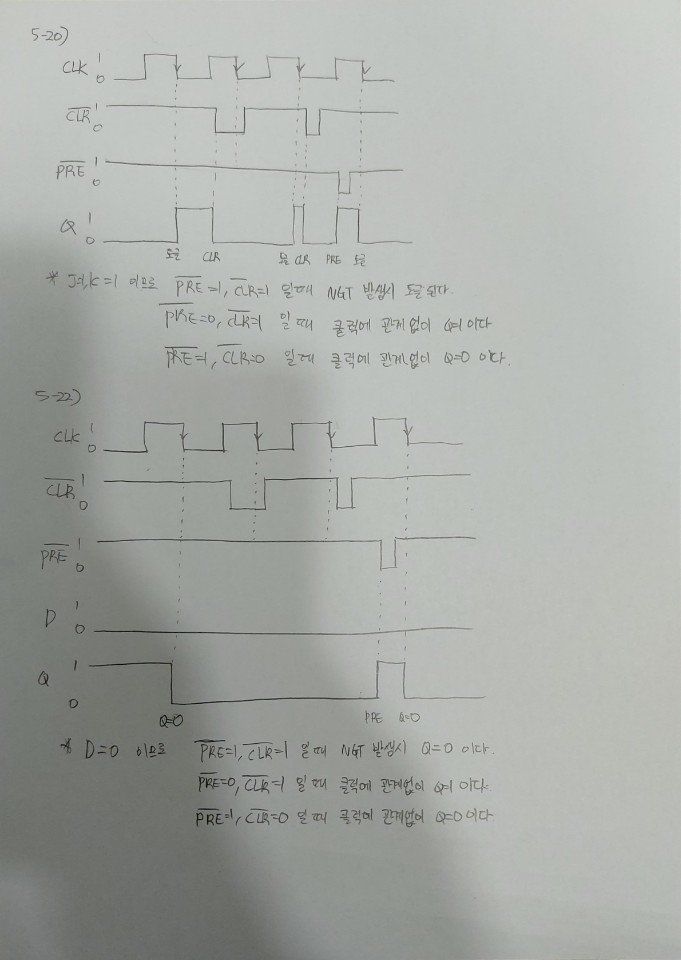 5-20)
CLK 1
0
CLR̅ 1
0
PRE̅ 1
0
Q 1
0
토글 CLR 토글 CLR PRE 토글
* J=1, K=1 이므로 PRE̅=1, CLR̅=1 일 때 NGT 발생시 토글 된다.
PRE̅=0, CLR̅=1 일 때 클럭에 관계없이 Q=1 이다
PRE̅=1, CLR̅=0 일 때 클럭에 관계없이 Q=0 이다.
5-22)
CLK 1
0
CLR̅ 1
0
PRE̅ 1
0
D 1
0
Q 1
0
Q=0 PRE Q=0
* D=0 이므로 PRE̅=1, CLR̅=1 일 때 NGT 발생시 Q=0 이다.
PRE̅=0, CLR̅=1 일 때 클럭에 관계없이 Q=1 이다.
PRE̅=1, CLR̅=0 일 때 클럭에 관계없이 Q=0 이다